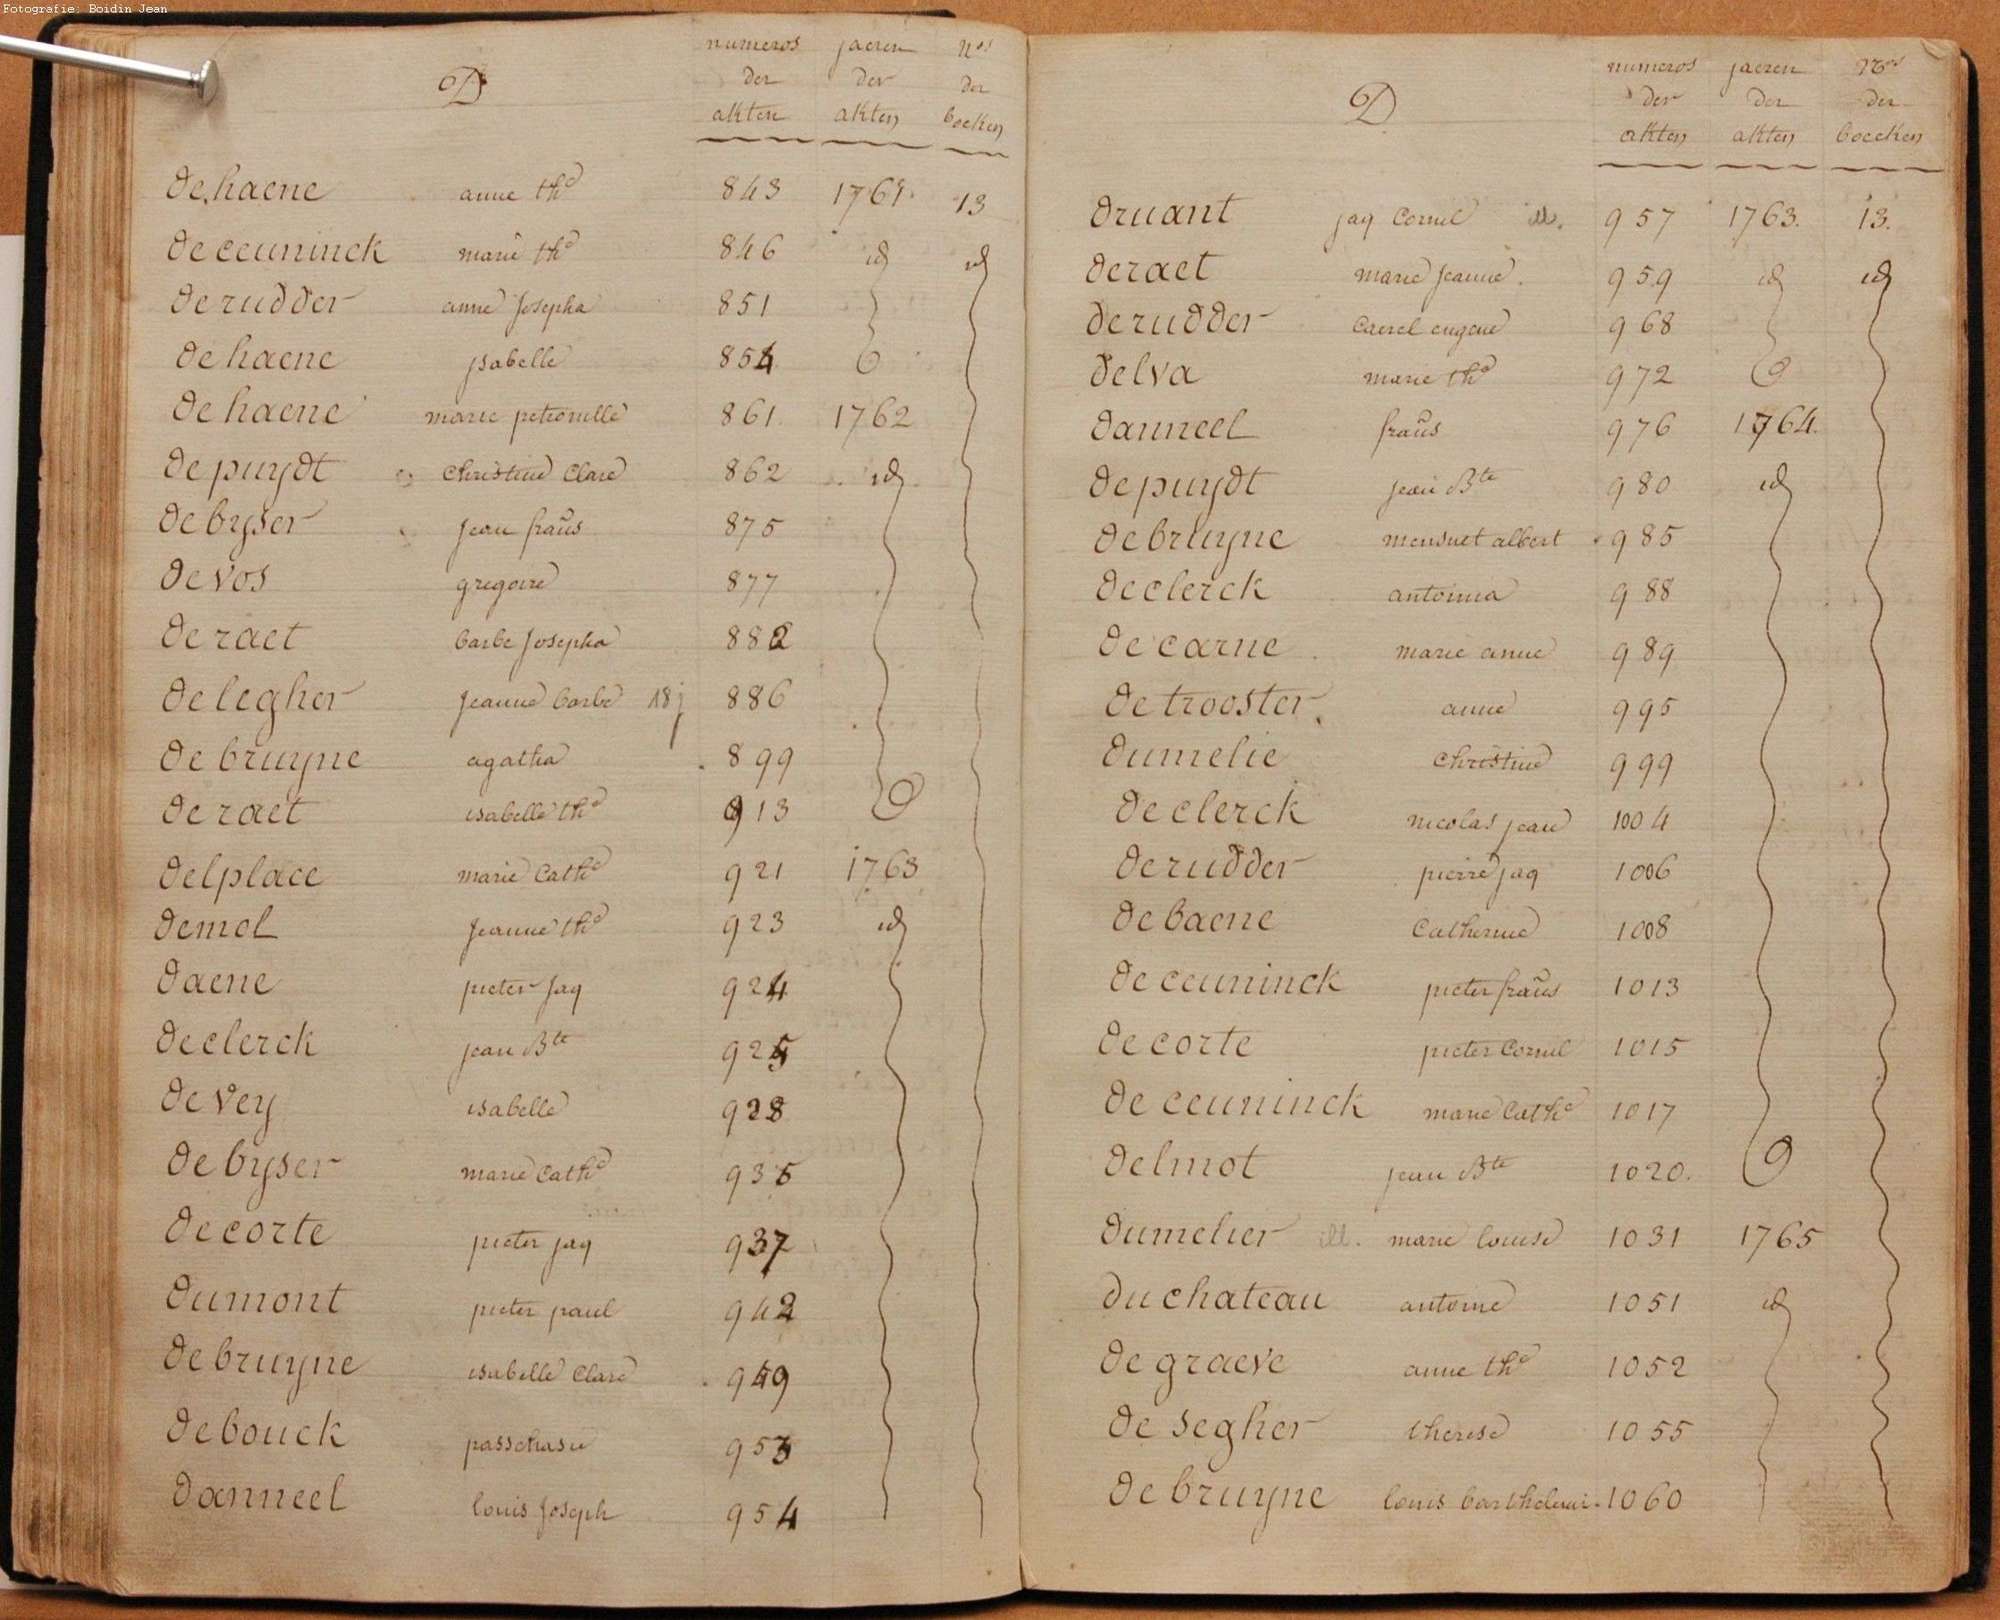 Fotografie: Boidin Jean
D numeros jaeren Nos
der der der
akten akten boeken
de haene anne the 843 1761 13
de ceuninck marie the 846 id id
de rudder anne Josepha 851
de haene ysabelle 854
de haene marie petronille 861 1762
de puydt Christine Clare 862 id
de byser jean frañs 875
de vos gregoire 877
de raet barbe Josepha 882
de legher Jeanne barbe 18j 886
de bruyne agatha 899
de raet isabelle the 913
delplace marie Cathe 921 1763
demol Jeanne the 923 id
daene pieter Jaq 924
de clerck jean Bte 925
de vey isabelle 928
de byser marie Cathe 935
de corte pieter jaq 937
dumont pieter paul 942
de bruyne isabelle Clare 949
de bouck passchasie 953
danneel louis Joseph 954
D numeros jaeren Nos
der der der
akten akten boecken
druant jaq Cornil ill. 957 1763. 13.
de raet marie Jeanne. 959 id id
de rudder Caerel eugene 968
delva marie the 972
danneel frañs 976 1764.
de puydt jean Bte 980 id
de bruyne mensuet albert 985
de clerck antonia 988
de carne marie anne 989
de trooster anne 995
dumelie Christine 999
de clerck nicolas jean 1004
de rudder pierre jaq 1006
de baene Catherine 1008
de ceuninck pieter frañs 1013
de corte pieter Cornil 1015
de ceuninck marie Cathe 1017
delmot jean Bte 1020.
dumelier ill. marie louise 1031 1765
du chateau antoine 1051 id
de graeve anne the 1052
de segher therese 1055
de bruyne louis barthelemi 1060